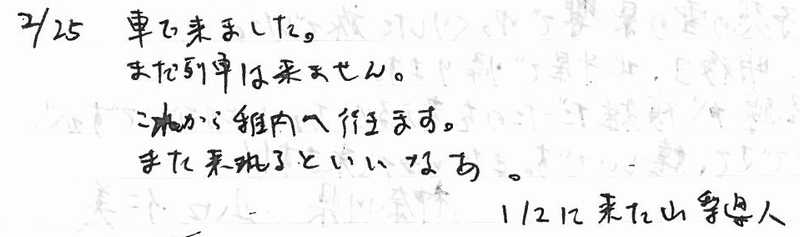 2/25 車で来ました。
まだ列車は来ません。
これから稚内へ行きます。
また来れるといいなあ。
1/2に来た山梨県人